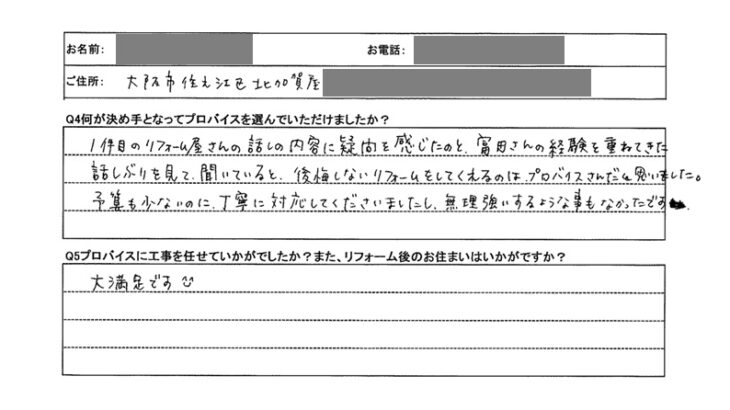 お名前:
お電話:
ご住所: 大阪市住之江区北加賀屋
Q4何が決め手となってプロバイスを選んでいただけましたか?
1件目のリフォーム屋さんの話しの内容に疑問を感じたのと、富田さんの経験を重ねてきた
話しぶりを見て、聞いていると、後悔しないリフォームをしてくれるのは、プロバイスさんだと思いました。
予算も少ないのに、丁寧に対応してくださいましたし、無理強いするような事もなかったです
Q5プロバイスに工事を任せていかがでしたか?また、リフォーム後のお住まいはいかがですか?
大満足です